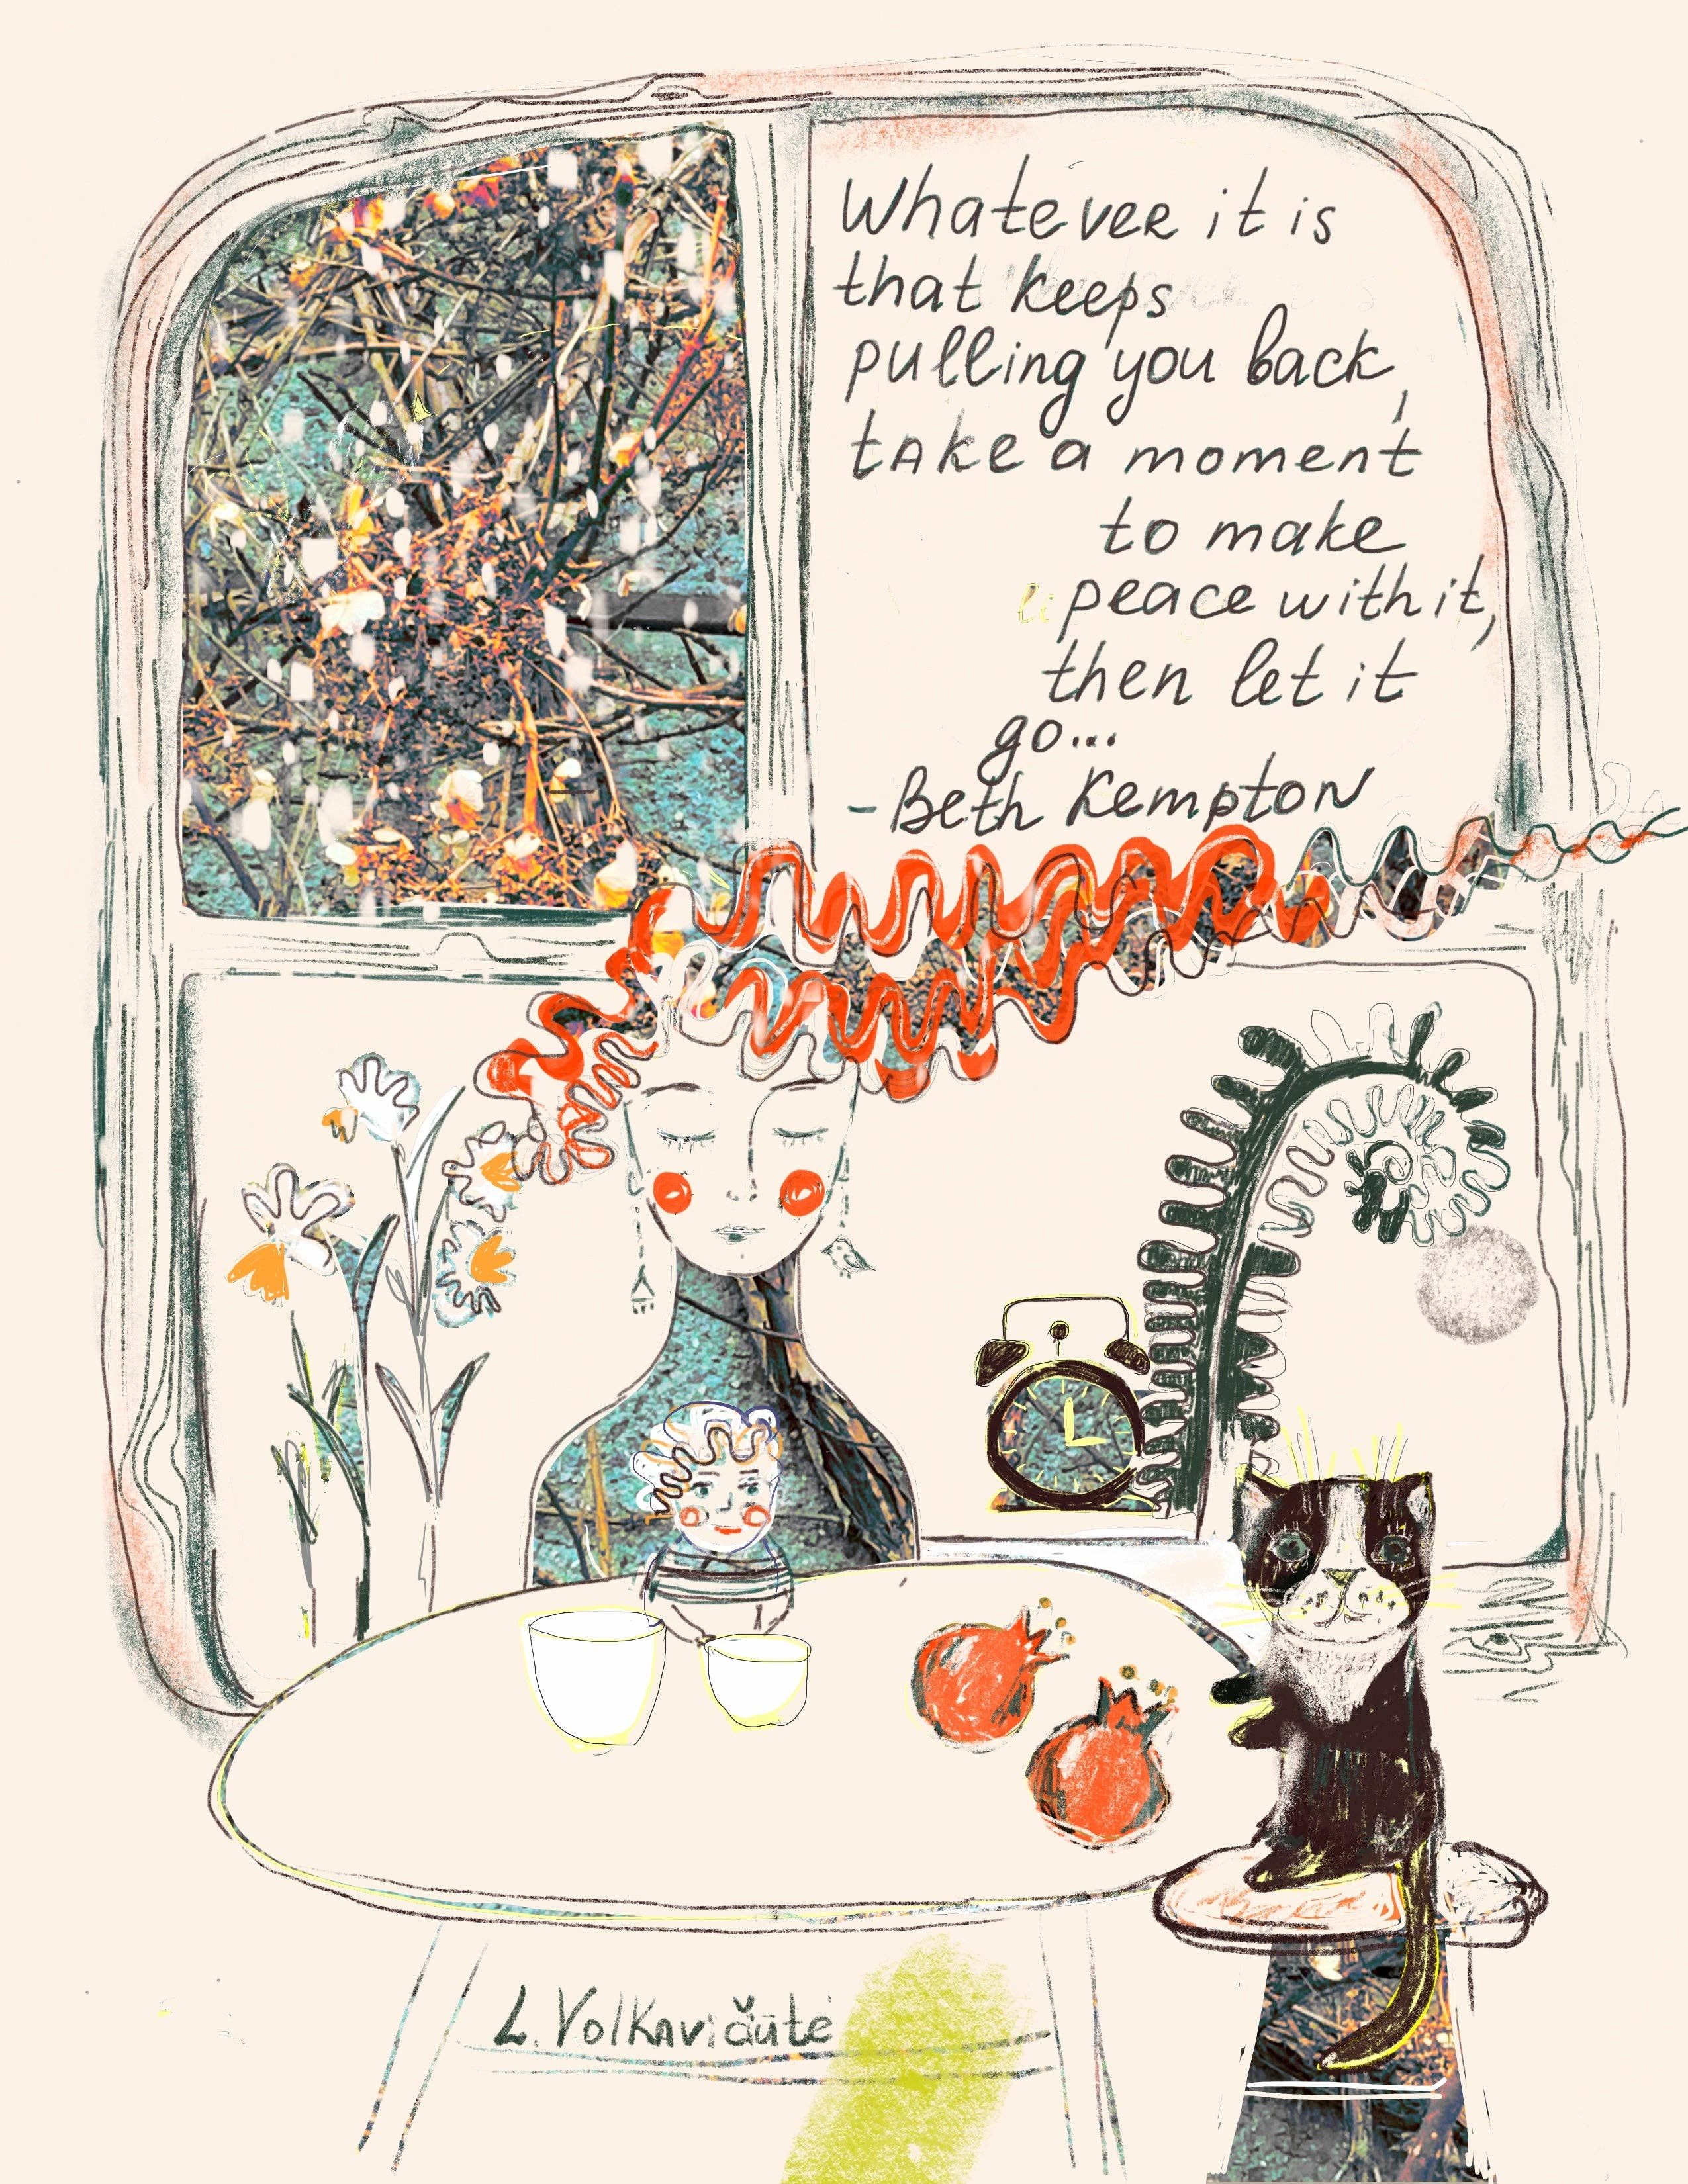 Whatever it is
that keeps
pulling you back,
take a moment
to make
peace with it,
then let it
go...
- Beth Kempton
L. Volkavičiūtė